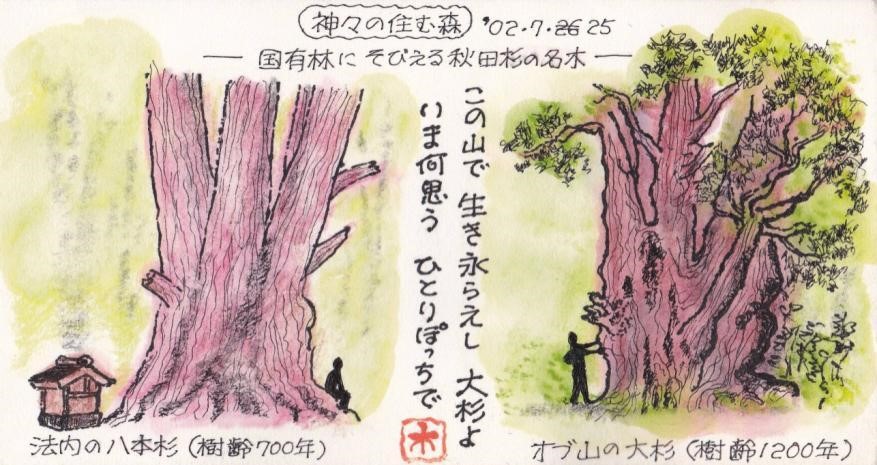 神々の住む森 '02.7.26 25
国有林にそびえる秋田杉の名木
この山で 生き永らえし 大杉よ
いま何思う ひとりぽっちで
木
法内の八本杉(樹齢700年)
オブ山の大杉(樹齢1200年)